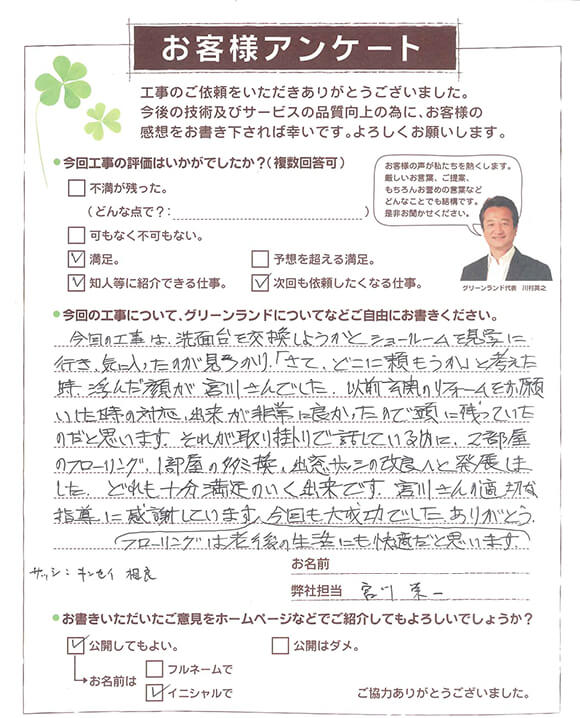 お客様アンケート
工事のご依頼をいただきありがとうございました。
今後の技術及びサービスの品質向上の為に、お客様の
感想をお書き下されば幸いです。よろしくお願いします。
今回工事の評価はいかがでしたか？（複数回答可）
不満が残った。
（どんな点で？：　）
可もなく不可もない。
満足。
予想を超える満足。
知人等に紹介できる仕事。
次回も依頼したくなる仕事。
お客様の声が私たちを熱くします。
厳しいお言葉、ご提案、
もちろんお誉めの言葉など
どんなことでも結構です。
是非お聞かせください。
グリーンランド代表　川村真之
今回の工事について、グリーンランドについてなどご自由にお書きください。
今回の工事は、洗面台を交換しようかとショールームを見学に
行き、気に入ったのが見つかり、「さて、どこに頼もうか」と考えた
時、浮んだ顔が宮川さんでした。以前玄関のリフォームをお願
いした時の対応、出来が非常に良かったので頭に残っていた
のだと思います。それが取り掛りで話している内に、2部屋
のフローリング、1部屋のタタミ換、出窓サッシの改良へと発展しま
した。どれも十分満足のいく出来です。宮川さんの適切な
指導に感謝しています。今回も大成功でした。ありがとう。
フローリングは老後の生活にも快適だと思います。
サッシ：キンセイ 相良
お名前
弊社担当　宮川 栄一
お書きいただいたご意見をホームページなどでご紹介してもよろしいでしょうか？
公開してもよい。
公開はダメ。
お名前は
フルネームで
イニシャルで
ご協力ありがとうございました。